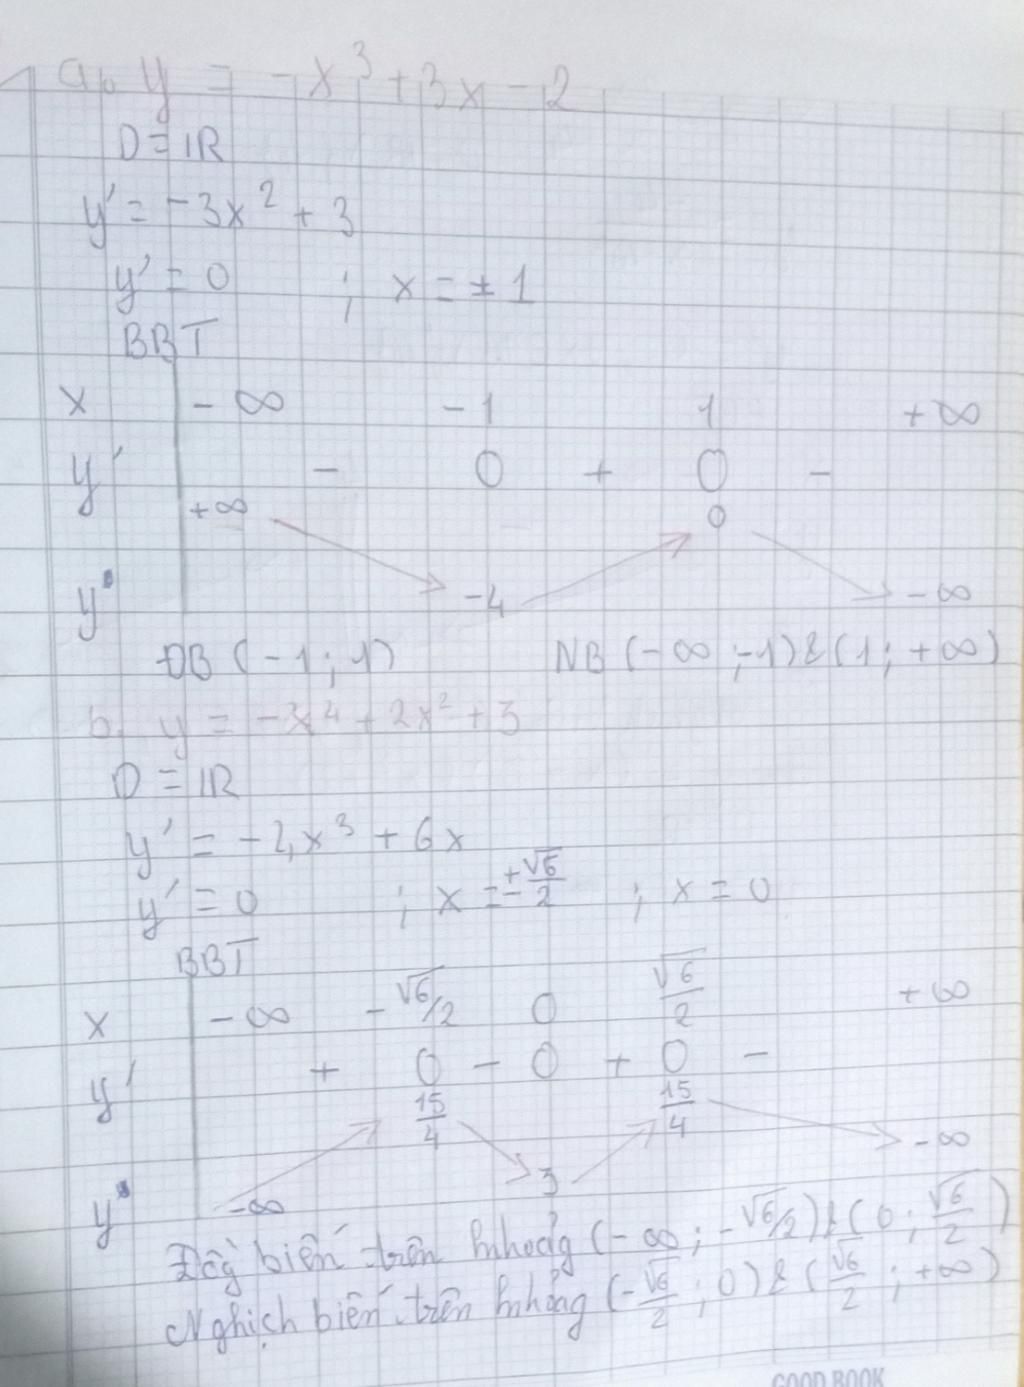 a, y = -x³ + 3x - 2
D = IR
y' = -3x² + 3
y' = 0 ; x = ± 1
BBT
x -∞ -1 1 +∞
y' - 0 + 0 -
+∞ 0
y -4 -∞
ĐB (-1; 1) NB (-∞; -1) & (1; +∞)
b, y = -x⁴ + 2x² + 3
D = IR
y' = -4x³ + 6x
y' = 0 ; x = ±√6/2 ; x = 0
BBT
x -∞ -√6/2 0 √6/2 +∞
y' + 0 - 0 + 0 -
15/4 15/4 -∞
y -∞ 3
Đồng biến trên khoảng (-∞; -√6/2) & (0; √6/2)
Nghịch biến trên khoảng (-√6/2; 0) & (√6/2; +∞)
GOOD BOOK